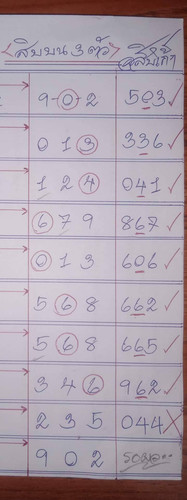 สิบบน 3 ตัว
9-0-2 503 ✓
0 1 3 336 ✓
1 2 4 041 ✓
6 7 9 867 ✓
0 1 3 606 ✓
5 6 8 662 ✓
5 6 8 665 ✓
3 4 6 962 ✓
2 3 5 044 X
9 0 2 รอผล...